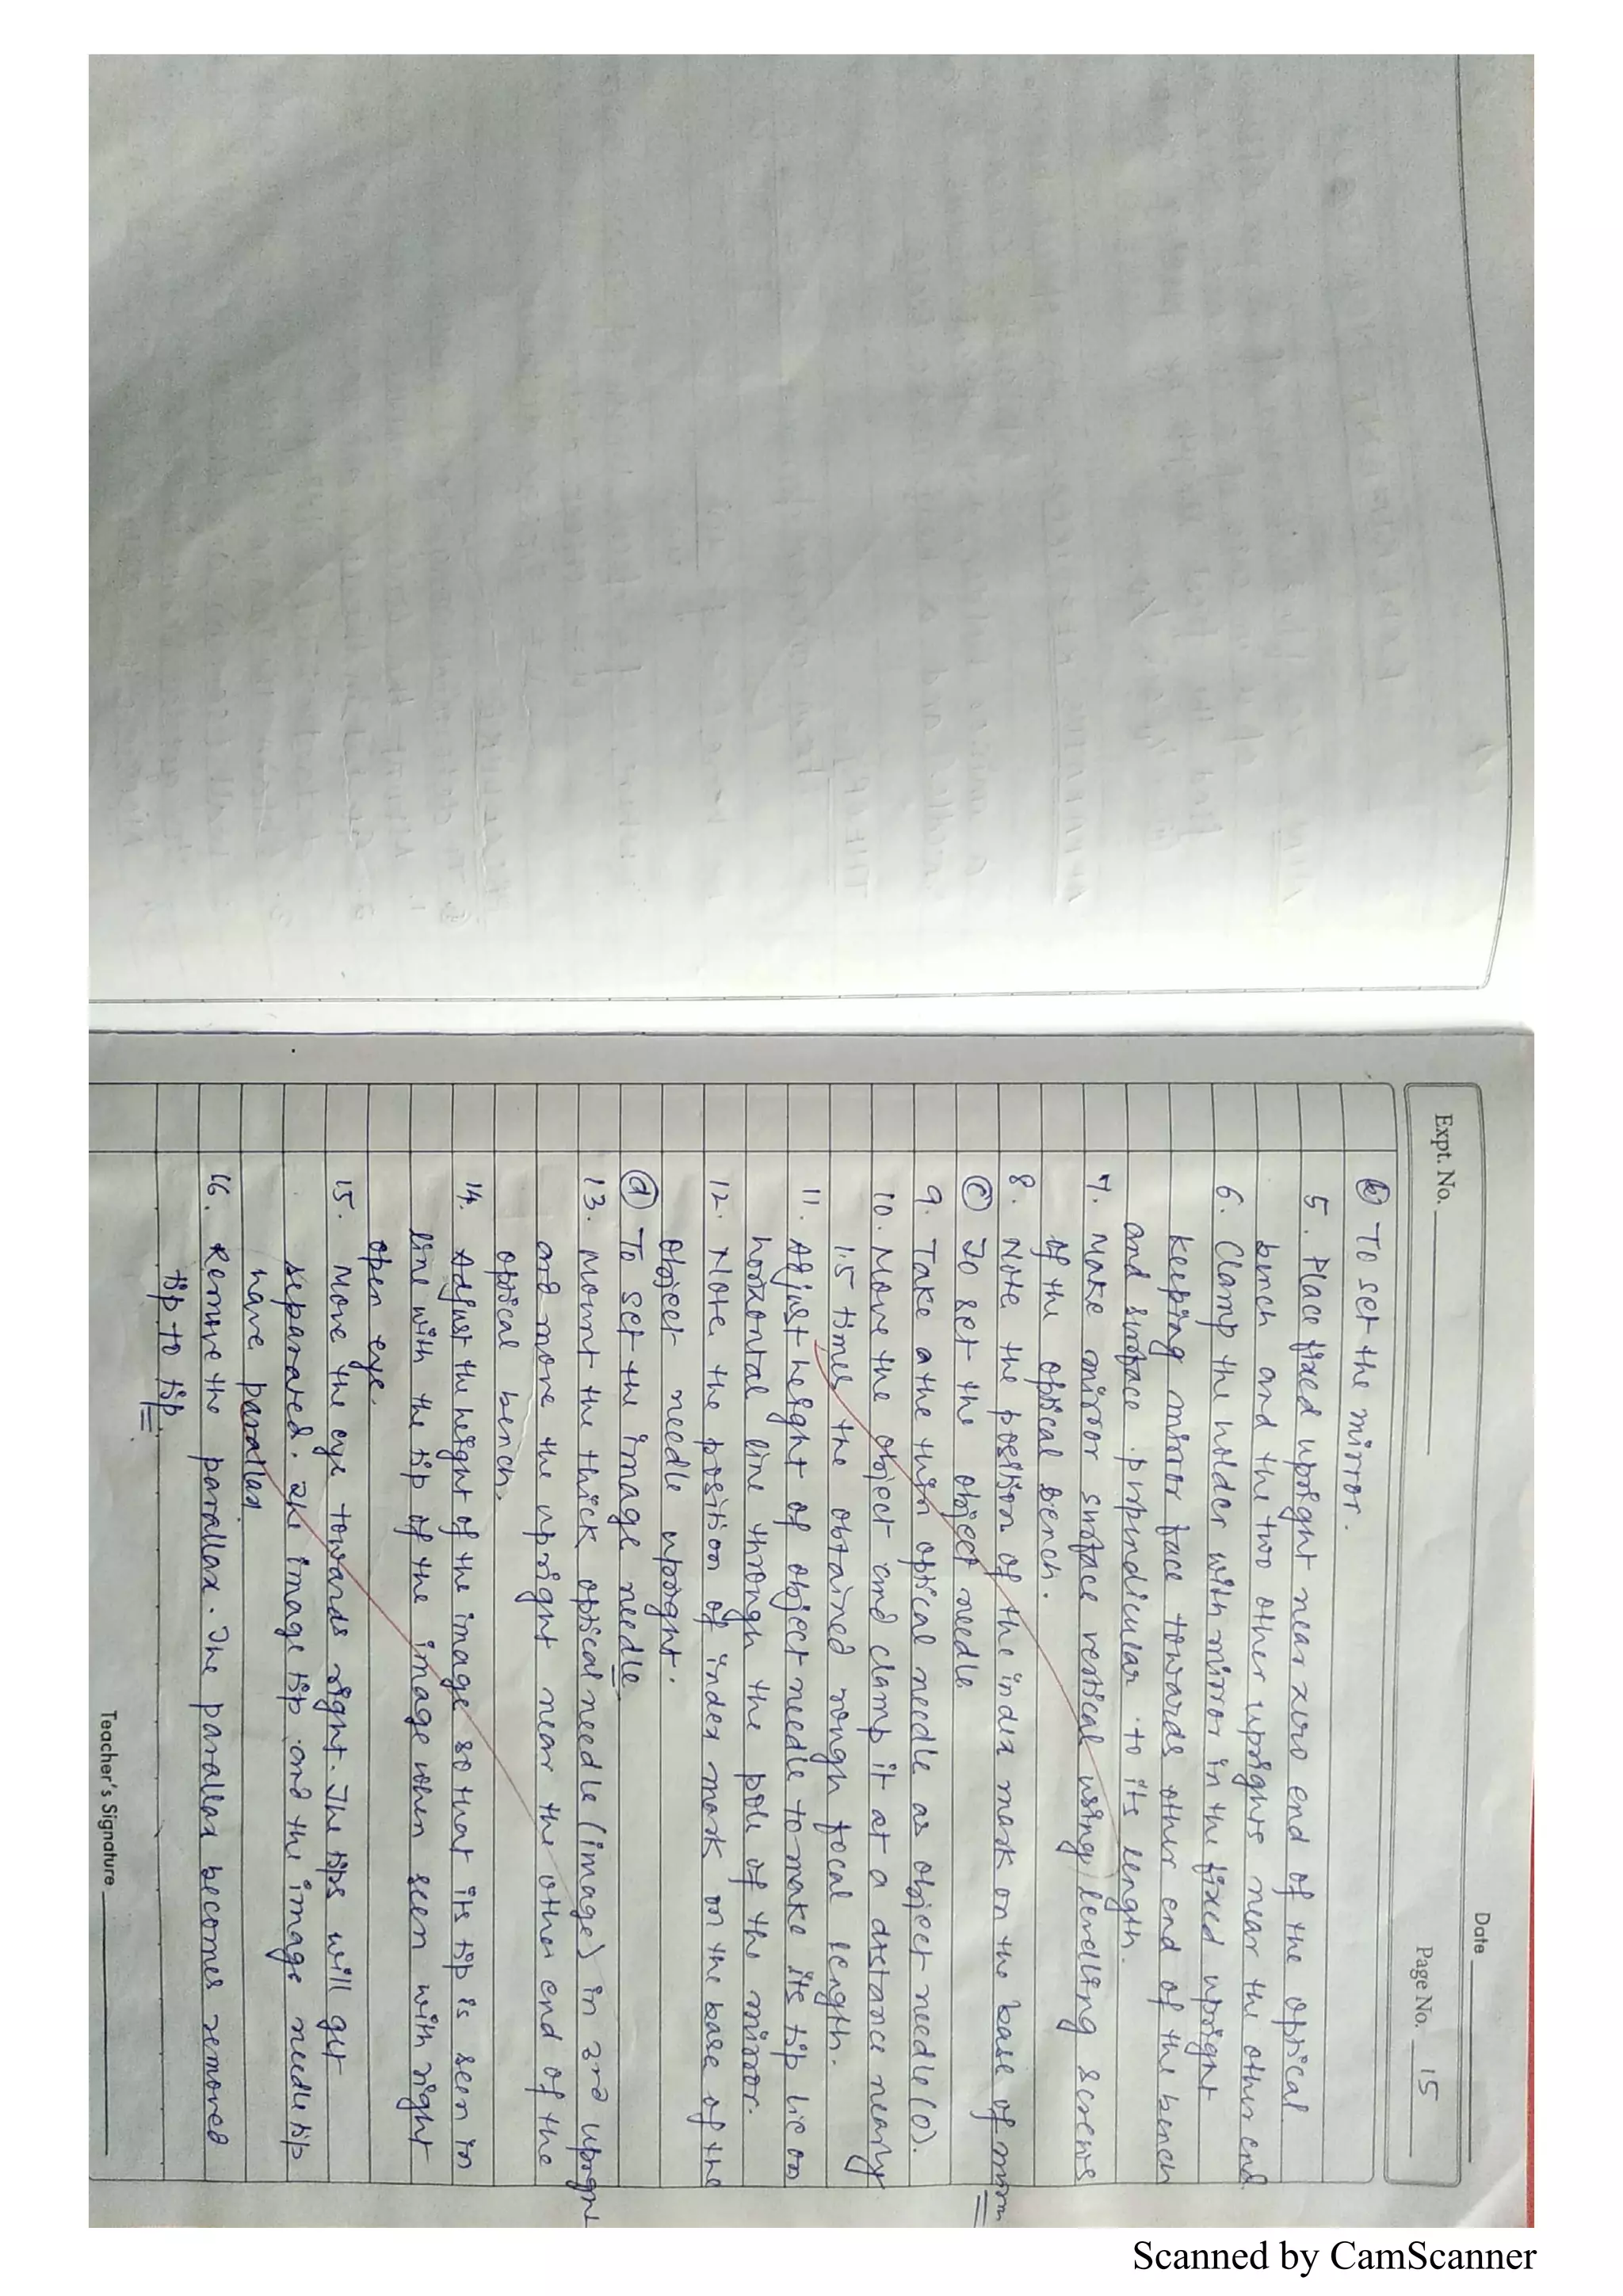 Date
Expt. No.
Page No. 15
(b) To set the mirror.
5. Place fixed upright near zero end of the optical
bench and the two other uprights near the other end
6. Clamp the holder with mirror in the fixed upright
keeping mirror face towards other end of the bench
and surface perpendicular to its length.
7. Make mirror surface vertical using levelling screws
of the optical bench.
8. Note the position of the index mark on the base of mirror
(c) To set the object needle
9. Take a the thin optical needle as object needle (O).
10. Move the object and clamp it at a distance nearly
1.5 times the obtained rough focal length.
11. Adjust height of object needle to make its tip lie on
horizontal line through the pole of the mirror.
12. Note the position of index mark on the base of the
object needle upright.
(d) To set the image needle
13. Mount the thick optical needle (image) in 3rd upright
and move the upright near the other end of the
optical bench.
14. Adjust the height of the image so that its tip is seen in
line with the tip of the image when seen with right
open eye.
15. Move the eye towards right. The tips will get
separated. The image tip and the image needle tip
have parallax.
16. Remove the parallax. The parallax becomes removed
tip to tip.
Teacher's Signature
Scanned by CamScanner